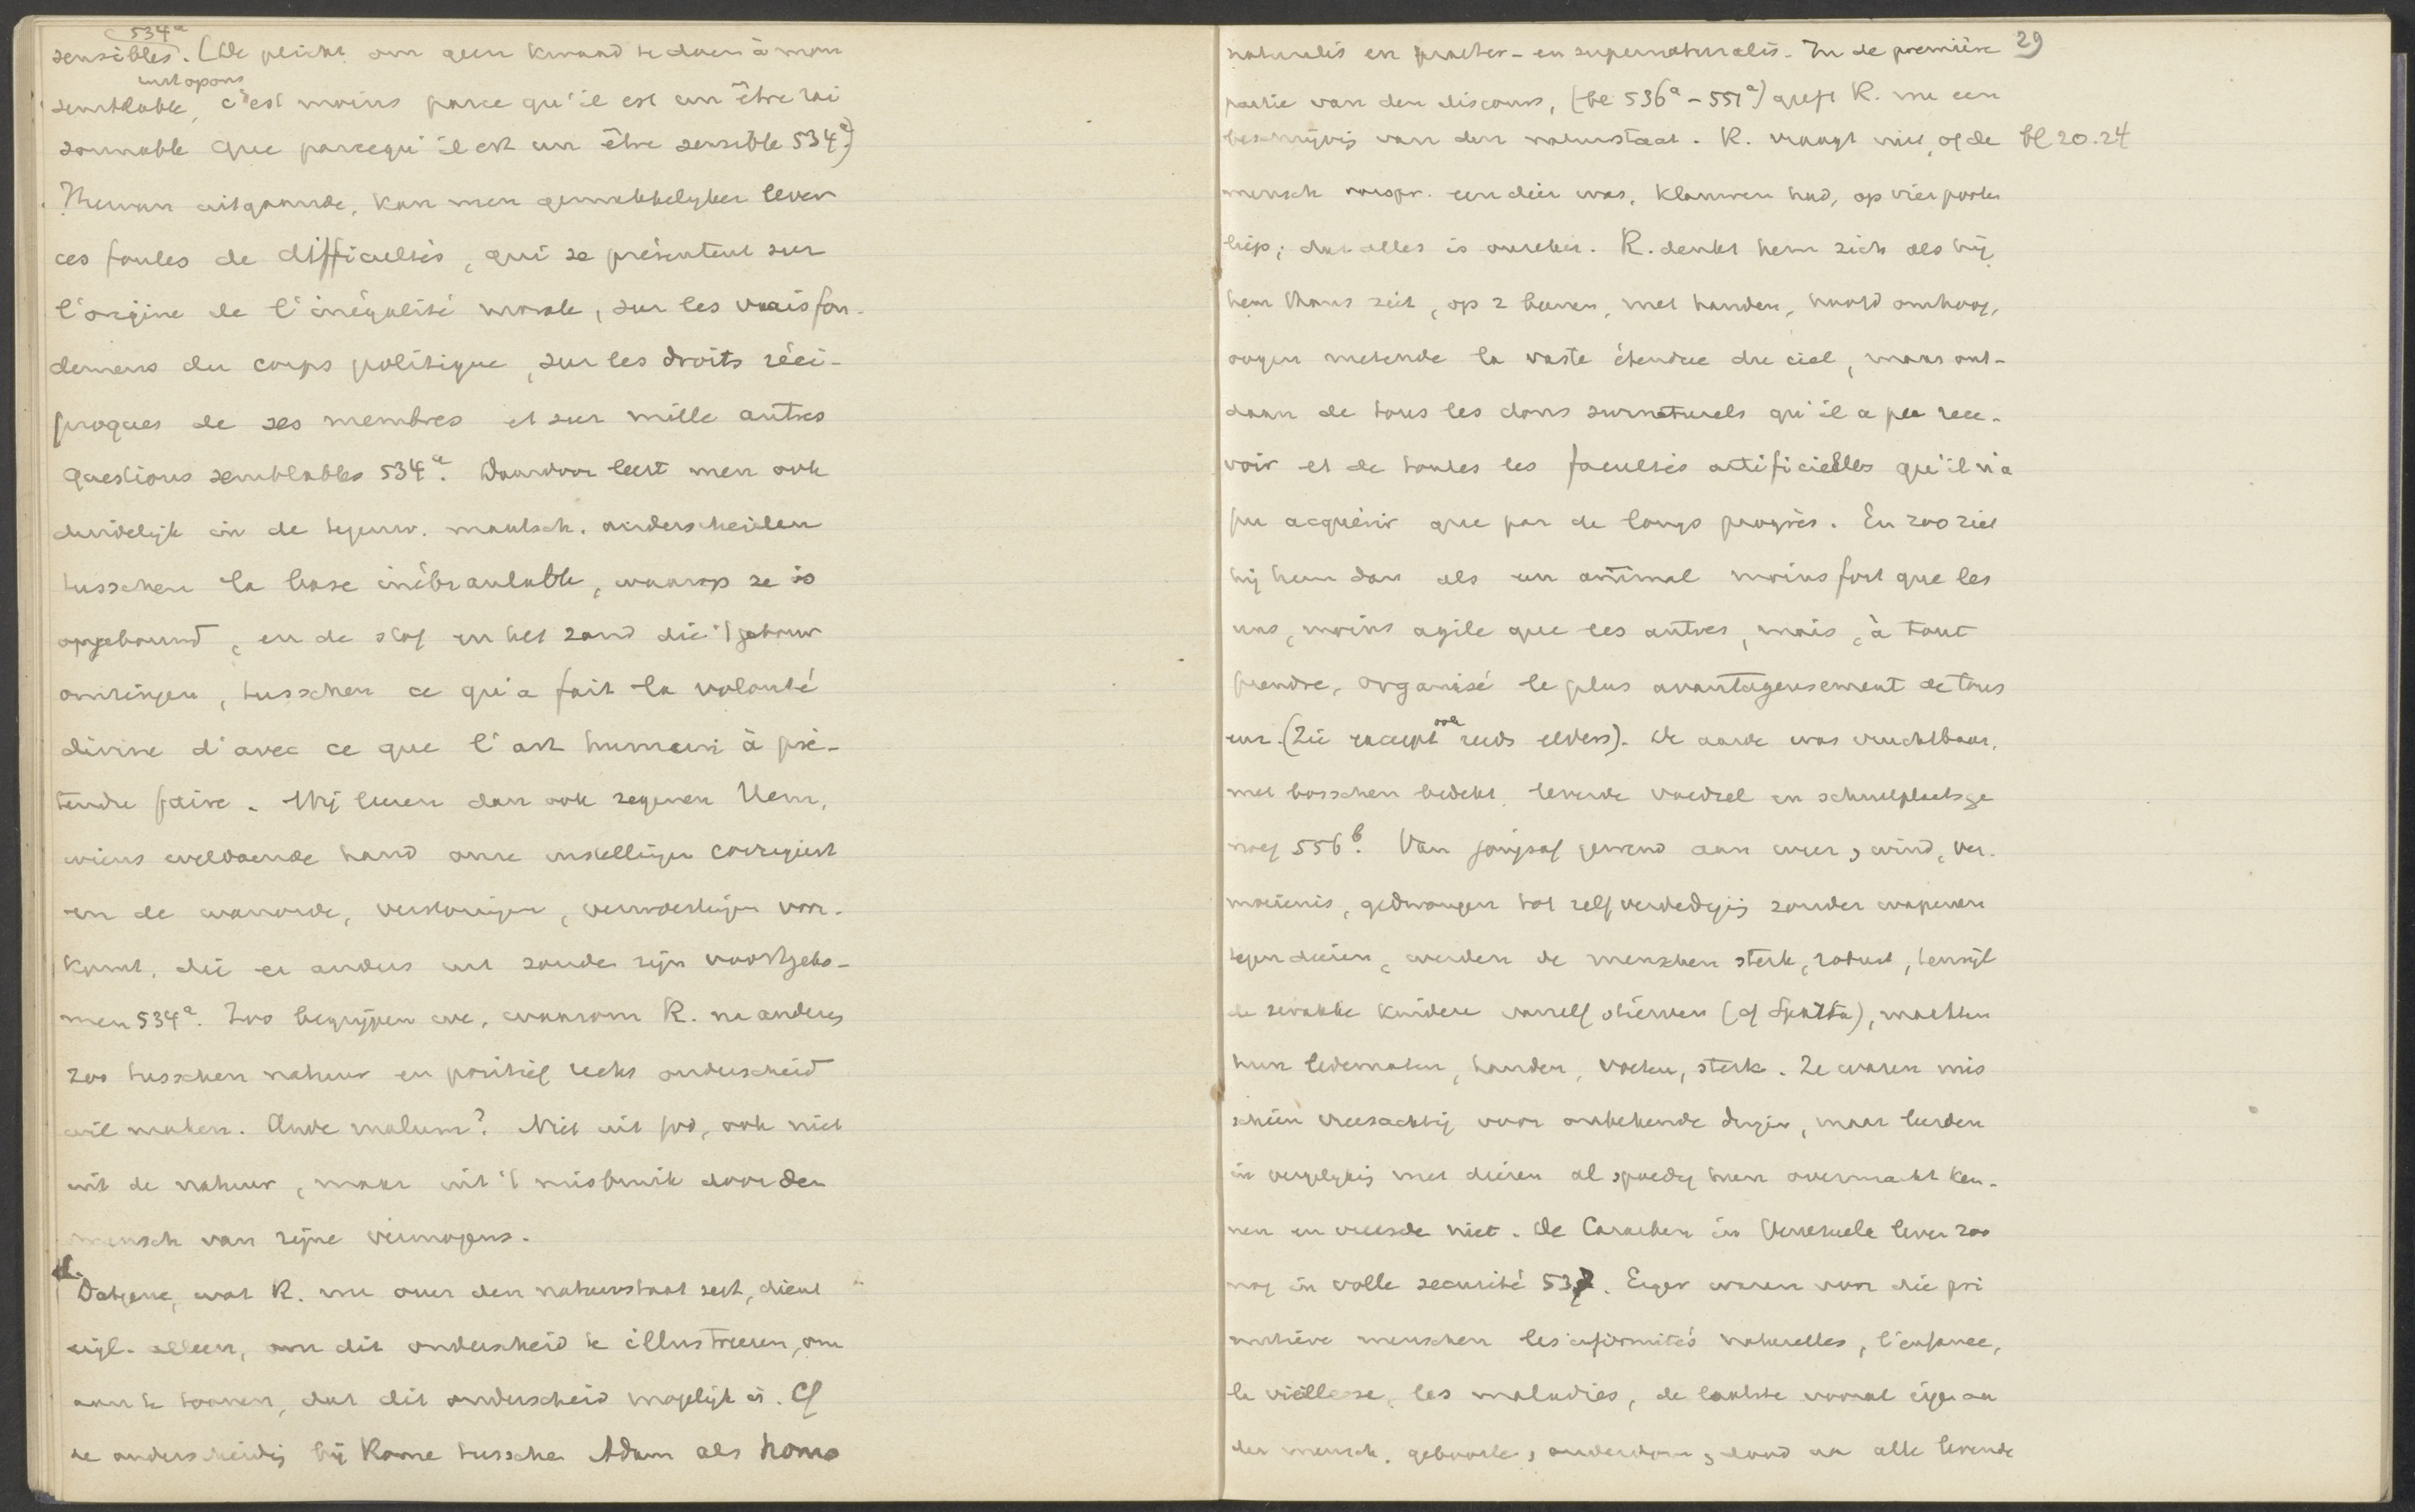 534a
sensibles. (De plicht om geen kwaad te doen à mon
rust op ons
semblable, c'est moins parce qu'il est un être rai
sonnable que parcequ'il est un être sensible 534a)
Hiervan uitgaande, kan men gemakkelyker lever
ces foules de difficultés, qui se présentent sur
l'origine de l'inégalité morale, sur les vrais fon-
demens du corps politique, sur les droits réci-
proques de ses membres et sur mille autres
questions semblables 534a. Daardoor leert men ook
duidelijk in de tegenw. maatsch. onderscheiden
tusschen la base inébranlable, waarop ze is
opgebouwd, en de stof en het zand die 't gebouw
omringen, tusschen ce qu'a fait la volonté
divine d'avec ce que l'art humain à pré-
tendu faire. Wij leeren dan ook zegenen Hem,
wiens weldoende hand onze instellingen corrigeert
en de wanorde, verstoringen, verwoestingen voor-
komt, die er anders uit zouden zijn voortgeko-
men 534a. Zoo begrijpen we, waarom R. na anderen
zoo tusschen natuur en positief recht onderscheid
wil maken. Unde malum? Niet uit God, ook niet
uit de natuur, maar uit 't misbruik door den
mensch van zijne vermogens.
Datgene, wat R. nu over den natuurstaat zegt, dient
eigl. alleen, om dit onderscheid te illustreeren, om
aan te toonen, dat dit onderscheid mogelijk is. Cf
de onderscheidig bij Rome tusschen Adam als homo
naturalis en praeter- en supernaturalis. In de première 29
partie van den discours, (bl 536a-551a) geeft R. nu een
beschrijvig van den natuurstaat. R. vraagt niet, of de bl 20.24
mensch oorspr. een dier was, klauwen had, op vier pooten
liep; dat alles is onzeker. R. denkt hem zich als hij
hem thans ziet, op 2 beenen, met handen, hoofd omhoog,
oogen metende la vaste étendue du ciel, maar ont-
daan de tous les dons surnaturels qu'il a pu rece-
voir et de toutes les facultés artificielles qu'il n'a
pu acquérir que par de longs progrès. En zoo ziet
hij hem dan als un animal moins fort que les
uns, moins agile que les autres, mais, à tout
prendre, organisé le plus avantageusement de tous
enz. (Zie excerpt ook reeds elders). De aarde was vruchtbaar,
met bosschen bedekt, leverde voedsel en schuilplaats ge
noeg 556b. Van jongsaf gewend aan weer, wind, ver-
moeienis, gedwongen tot zelfverdedigig zonder wapenen
tegen dieren, werden de menschen sterk, robust, terwijl
de zwakke kindere vanzelf stierven (cf Sparta), maakten
hun ledematen, handen, voeten, sterk. Ze waren mis
schien vreesachtig voor onbekende dingen, maar leerden
in vergelykig met dieren al spoedig hun overmacht ken-
nen en vreesde niet. De Caraiben in Venezuela leven zoo
nog in volle securité 537. Eigen waren van die pri
mitieve menschen les infirmités naturelles, l'enfance,
la vieillesse, les maladies, de laatste vooral eigen aan
den mensch, geboorte, ouderdom, dood aan alle levende